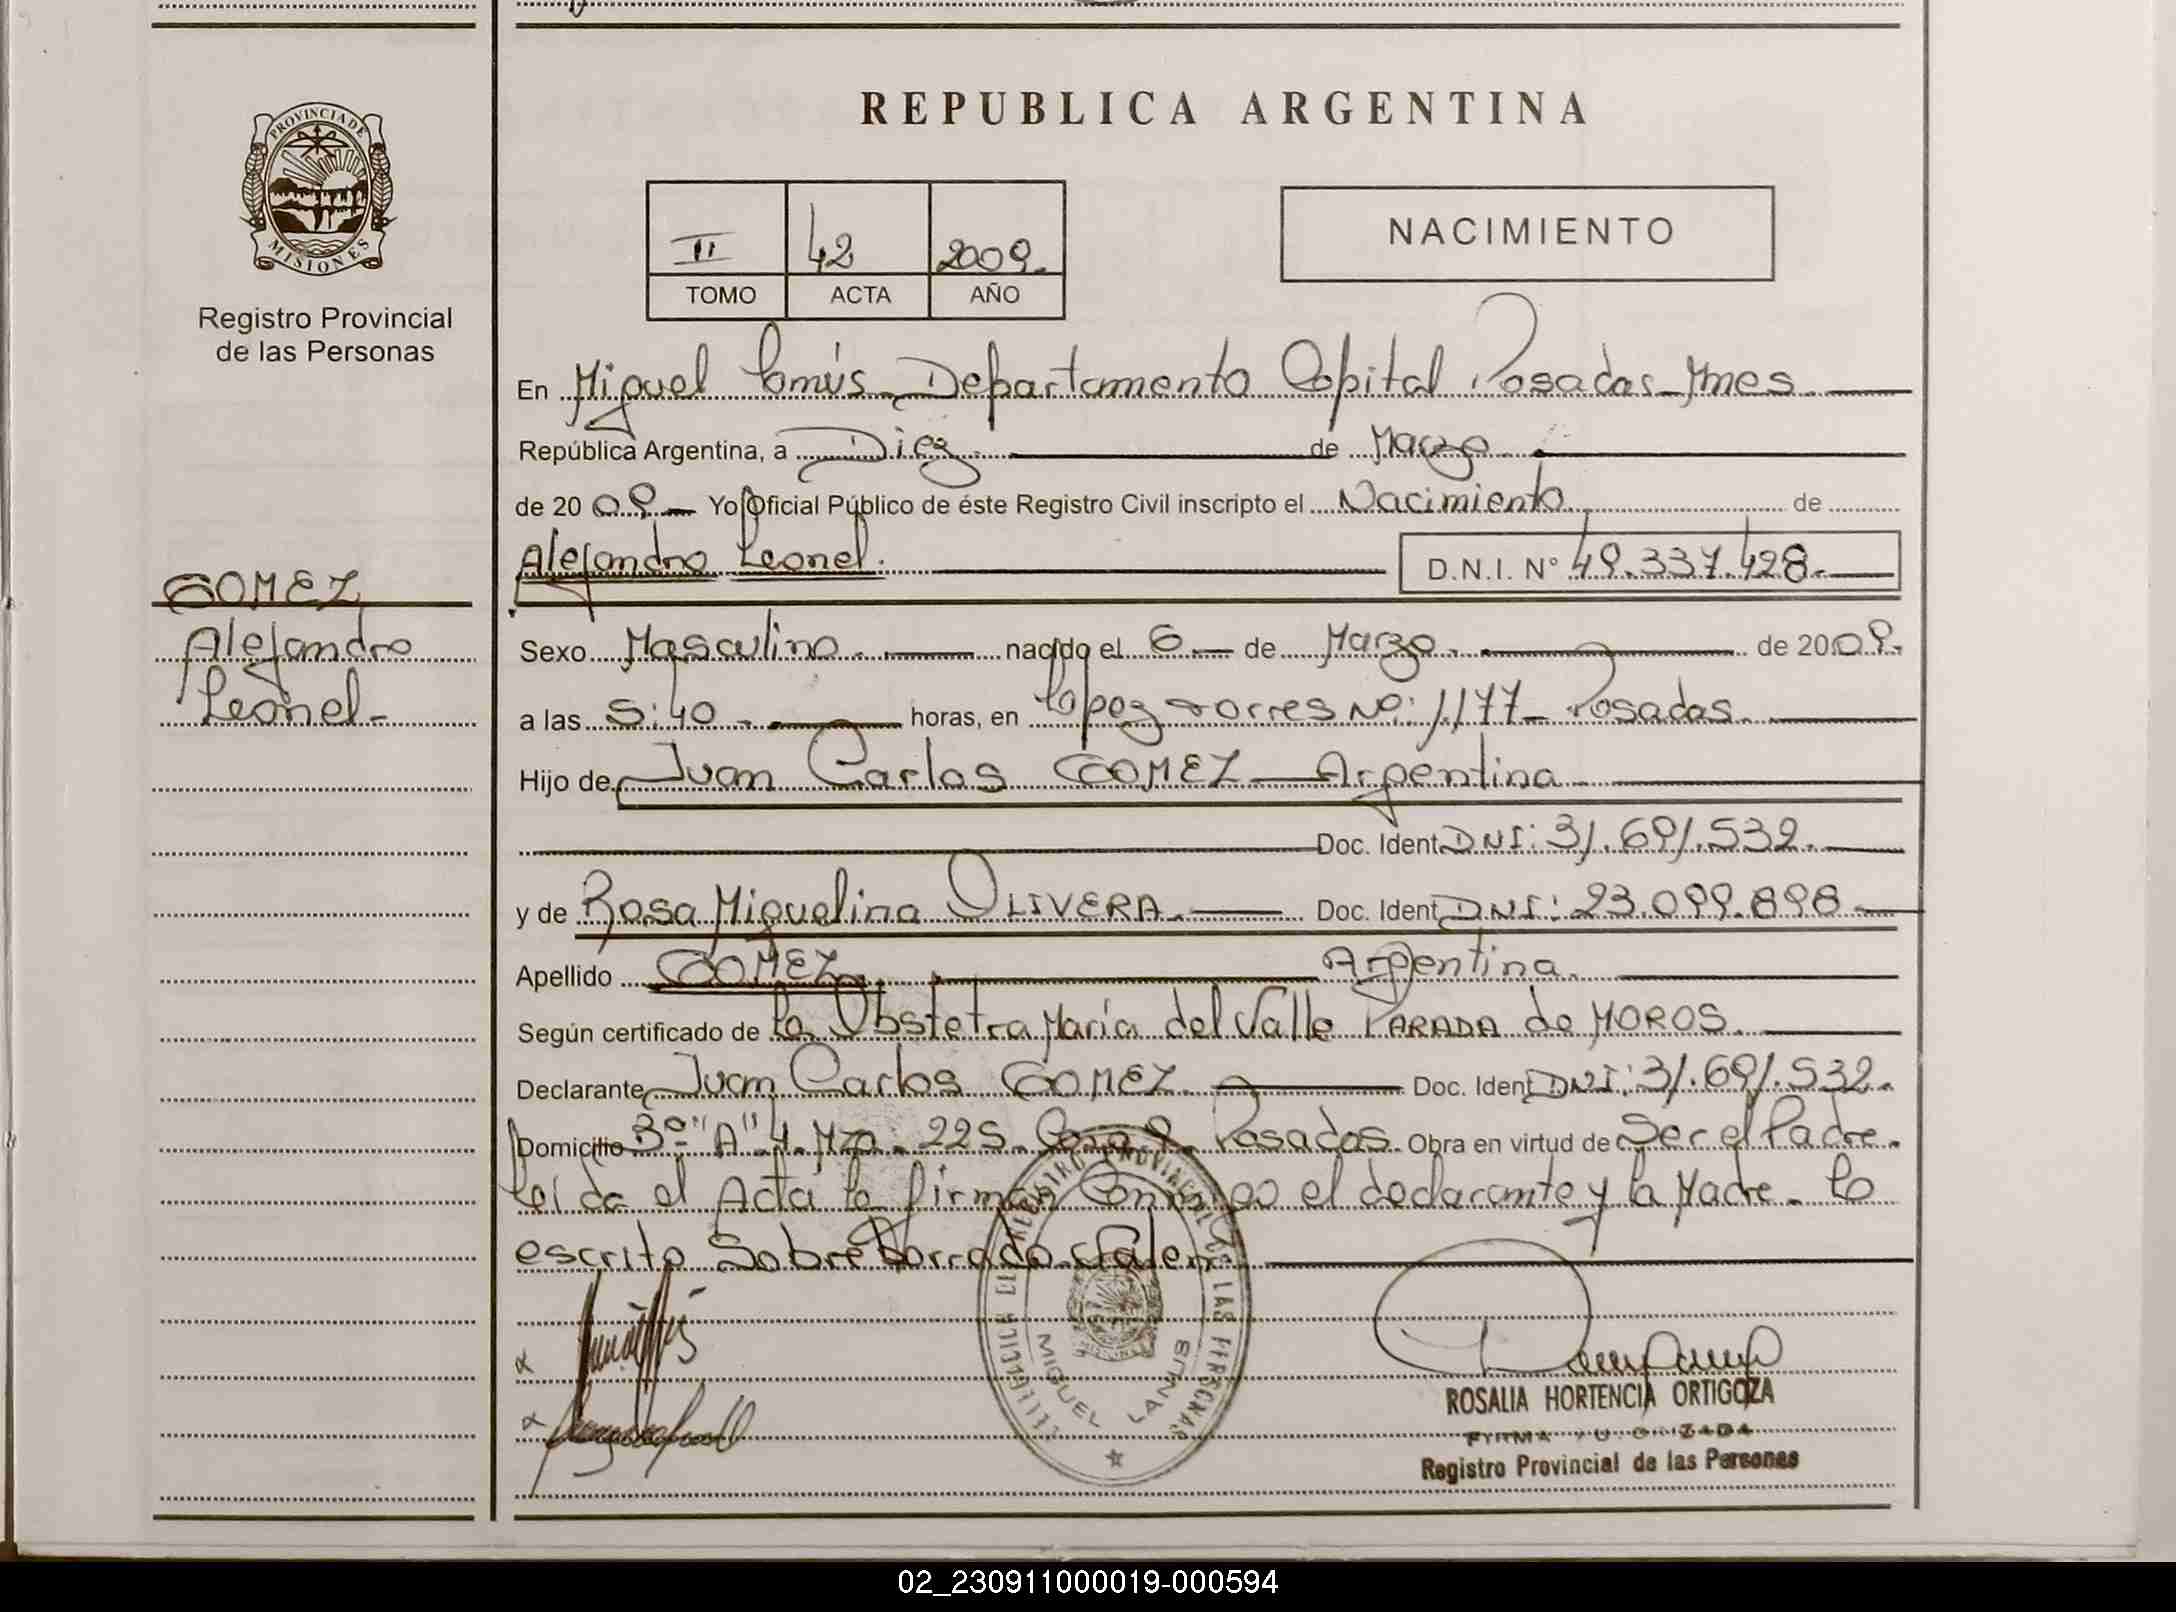 PROVINCIA DE
MISIONES
Registro Provincial
de las Personas
GOMEZ
Alejandro
Leonel-
REPUBLICA ARGENTINA
II 42 2009.
TOMO ACTA AÑO
NACIMIENTO
En Miguel Lanús Departamento Capital Posadas-Mnes.
República Argentina, a Diez de Marzo.
de 2009 Yo Oficial Público de éste Registro Civil inscripto el Nacimiento de
Alejandro Leonel. D.N.I. N° 49.337.428.
Sexo Masculino. nacido el 6 de Marzo. de 2009.
a las 5:40. horas, en Lopez Torres No: 1177- Posadas.
Hijo de Juan Carlos GOMEZ Argentina
Doc. Ident. DNI: 31.691.532.
y de Rosa Miguelina OLIVERA. Doc. Ident. DNI: 23.099.898
Apellido GOMEZ Argentina.
Según certificado de la Obstetra María del Valle PARADA de MOROS.
Declarante Juan Carlos GOMEZ. Doc. Ident. DNI: 31.691.532.
Domicilio 3º "A" 4. Mza. 225. Casa 9. Posadas. Obra en virtud de Ser el Padre.
Leída el Acta la firman Conmigo el declarante y la Madre. Lo
escrito Sobre Borrado. Valen.
MIGUEL LANUS
ROSALIA HORTENCIA ORTIGOZA
FIRMA AUTORIZADA
Registro Provincial de las Personas
02_230911000019-000594